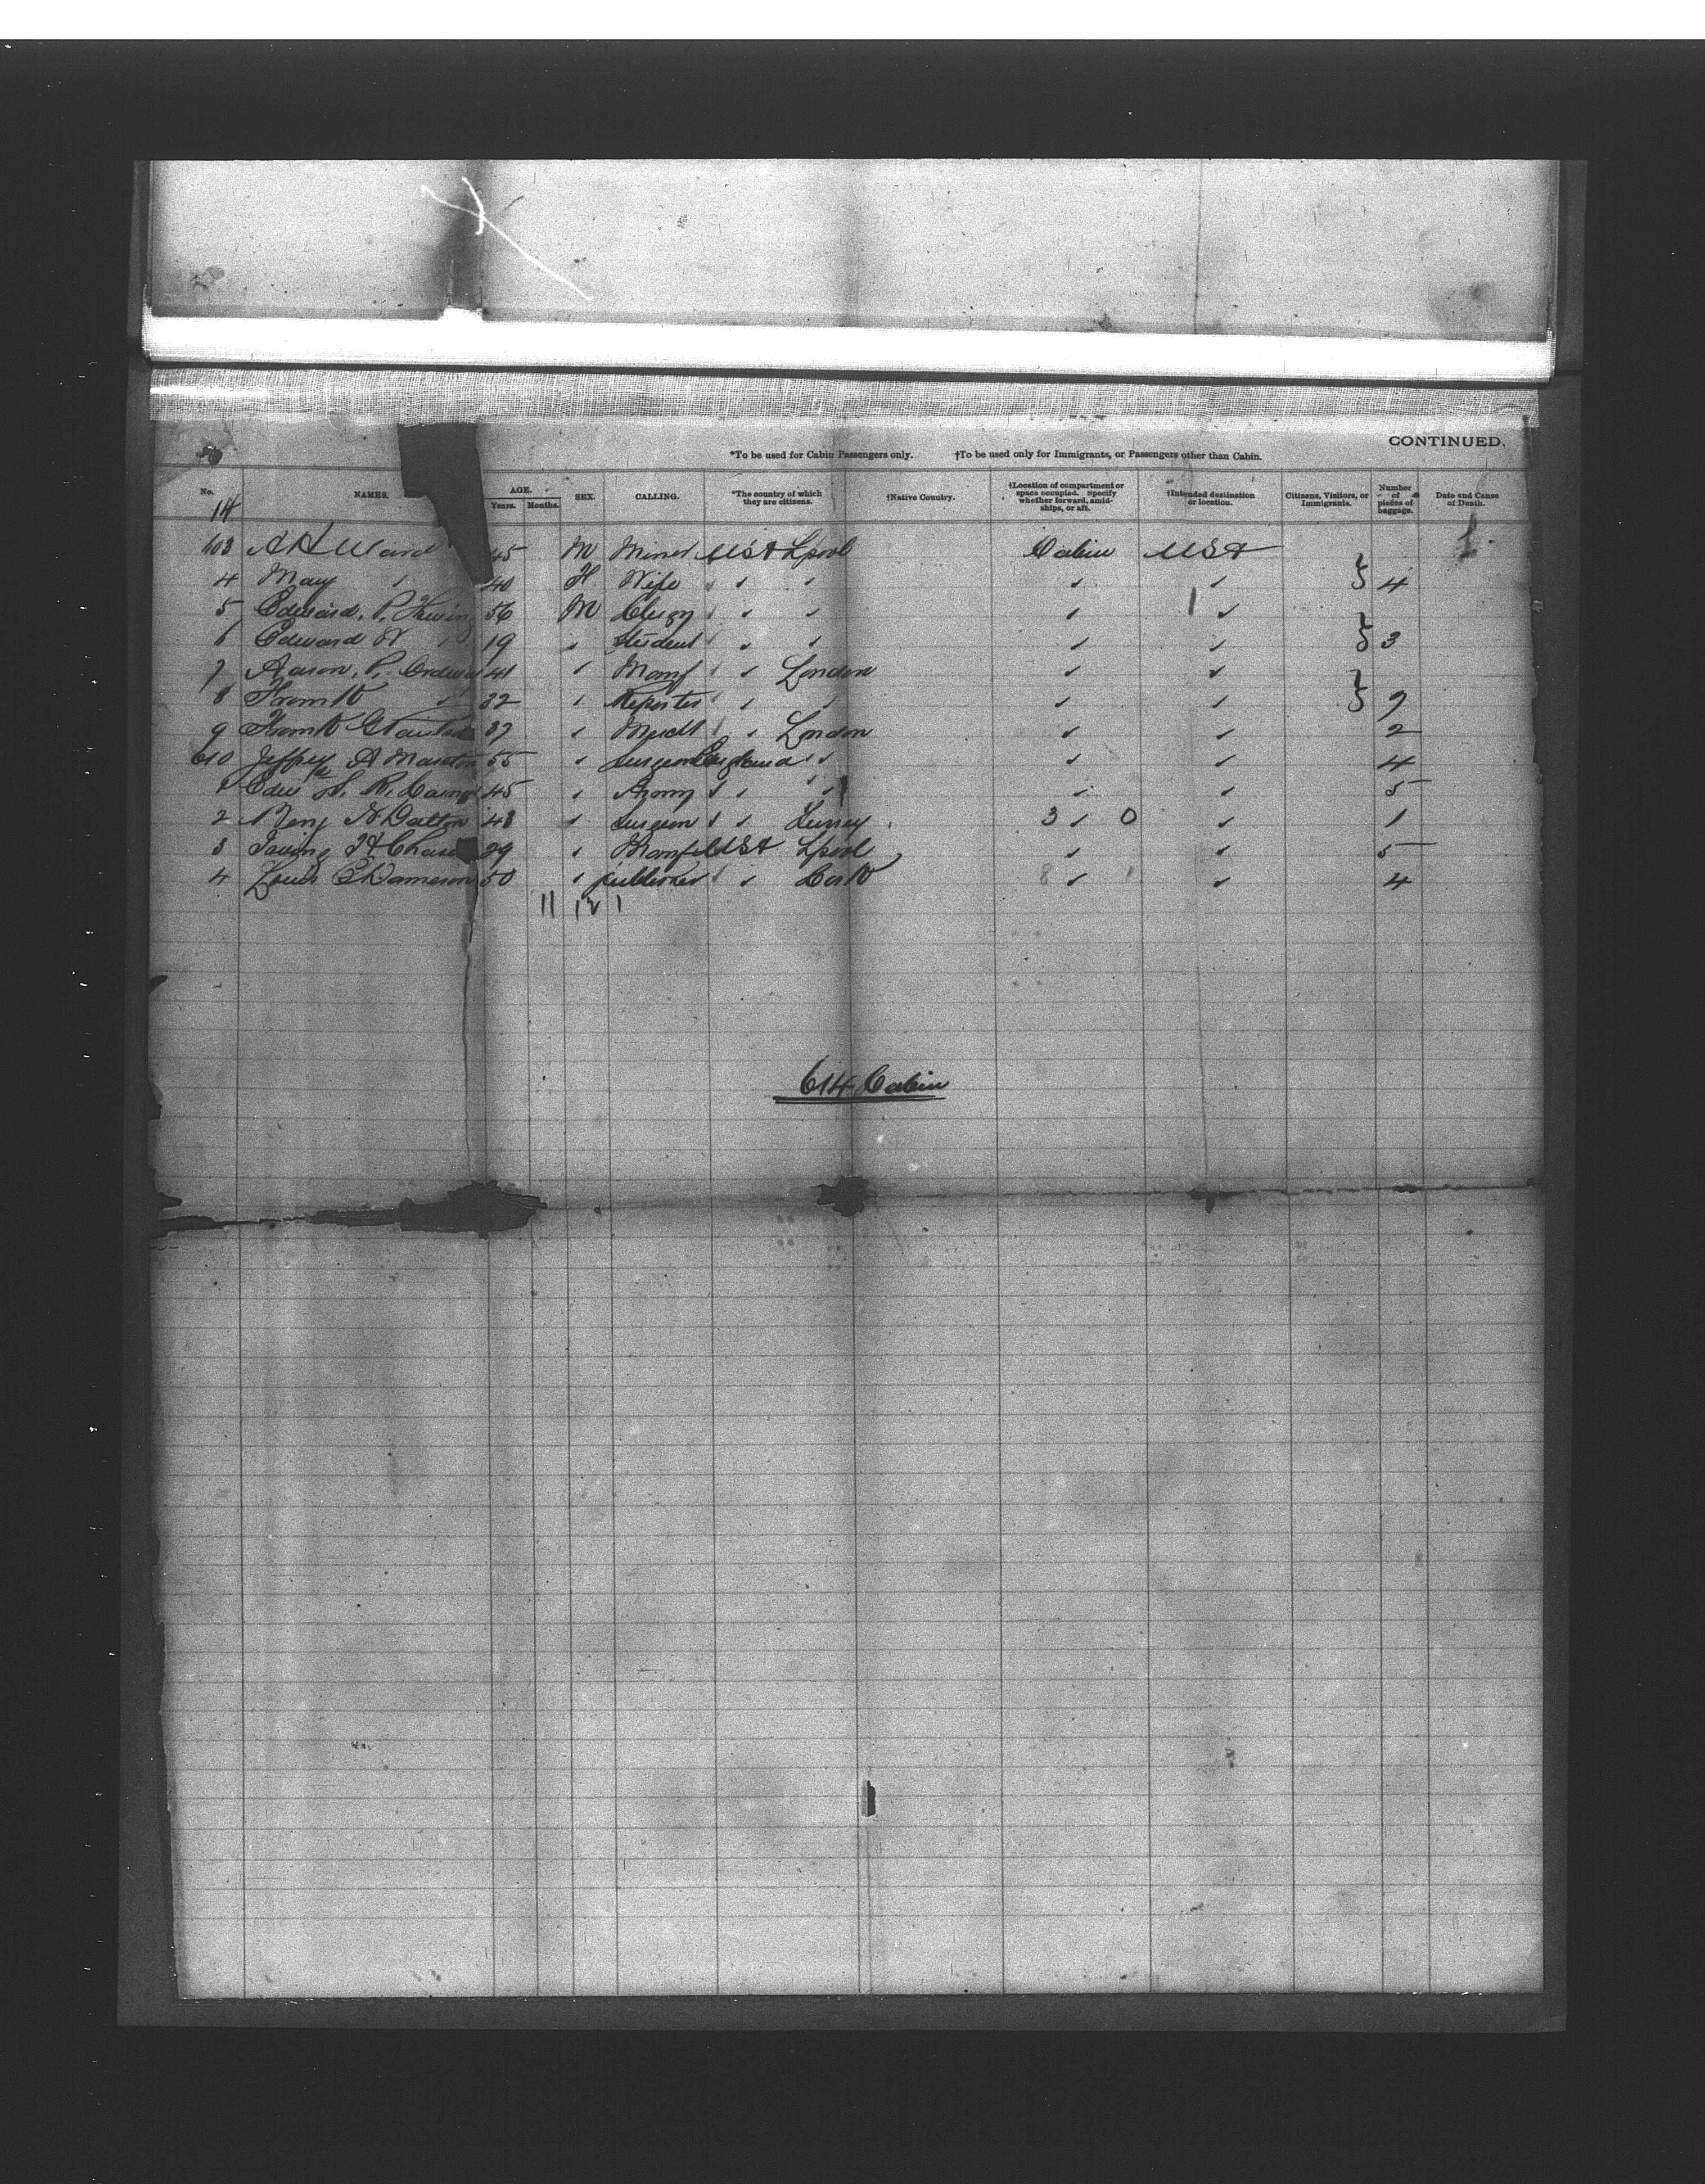 CONTINUED.
*To be used for Cabin Passengers only. †To be used only for Immigrants, or Passengers other than Cabin.
No. NAMES. AGE. Years. Months. SEX. CALLING. *The country of which they are citizens. †Native Country. †Location of compartment or space occupied. Specify whether forward, amidships, or aft. †Intended destination or location. Citizens, Visitors, or Immigrants. Number of pieces of baggage. Date and Cause of Death.
14
603 A H Ward 45 M Miner USA Lpool Cabin USA
4 May " 40 F Wife " " " " " } 4
5 Edward. P. 56 M Clergy " " " " "
6 Edward " 19 " Student " " " " " } 3
7 Aaron. P. Ordway 41 " Manf " " London " "
8 Frank " 32 " Reporter " " " " " }
9 Frank 37 " Mercht " " London " " 2
610 Jeffrey A Marston 55 " Surgeon England " " " " 4
1 S. R. 45 " Army " " " " " 5
2 Benj N Dalton 43 " Surgeon " " Surrey 3 " 0 " 1
3 Irving H Chase 29 " Manf USA Lpool " " 5
4 Louis E Dameron 50 " publisher " " Cork " " 4
11 12 1
614 Cabin